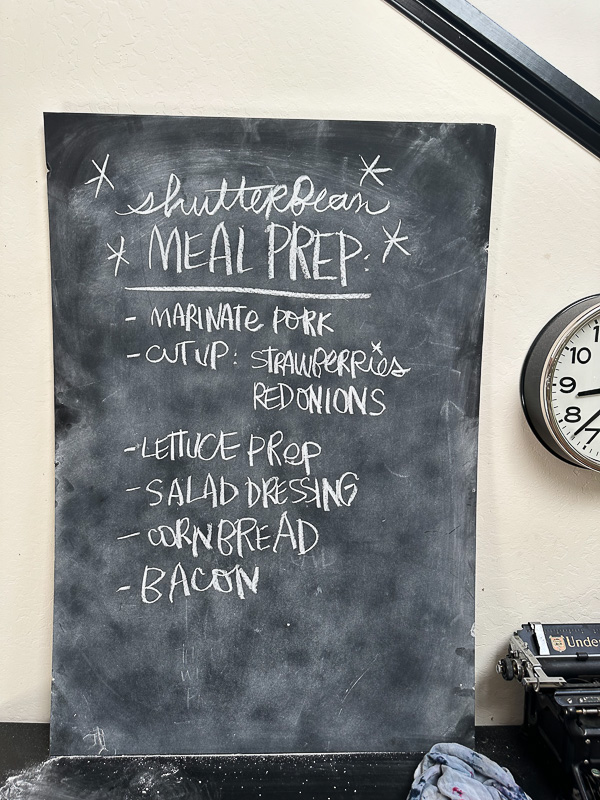 shutterBean
MEAL PREP:
- MARINATE PORK
- CUT UP: STRAWBERRIES
RED ONIONS
- LETTUCE PREP
- SALAD DRESSING
- CORNBREAD
- BACON
10
9
8
7
Unde